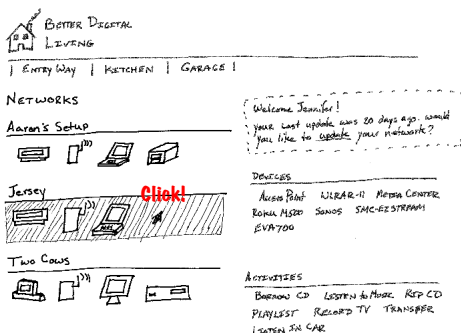 BETTER DIGITAL
LIVING
| ENTRY WAY | KITCHEN | GARAGE |
NETWORKS
Aaron's Setup
Jersey
Click!
Two Cows
Welcome Jennifer!
your last update was 20 days ago. would
you like to update your network?
DEVICES
AUDIO Point WURAR-11 MEDIA CENTER
ROKU M500 SONOS SMC-EZSTREAM
EVA700
ACTIVITIES
BORROW CD LISTEN to MUSIC RIP CD
PLAYLIST RECORD TV TRANSFER
LISTEN IN CAR